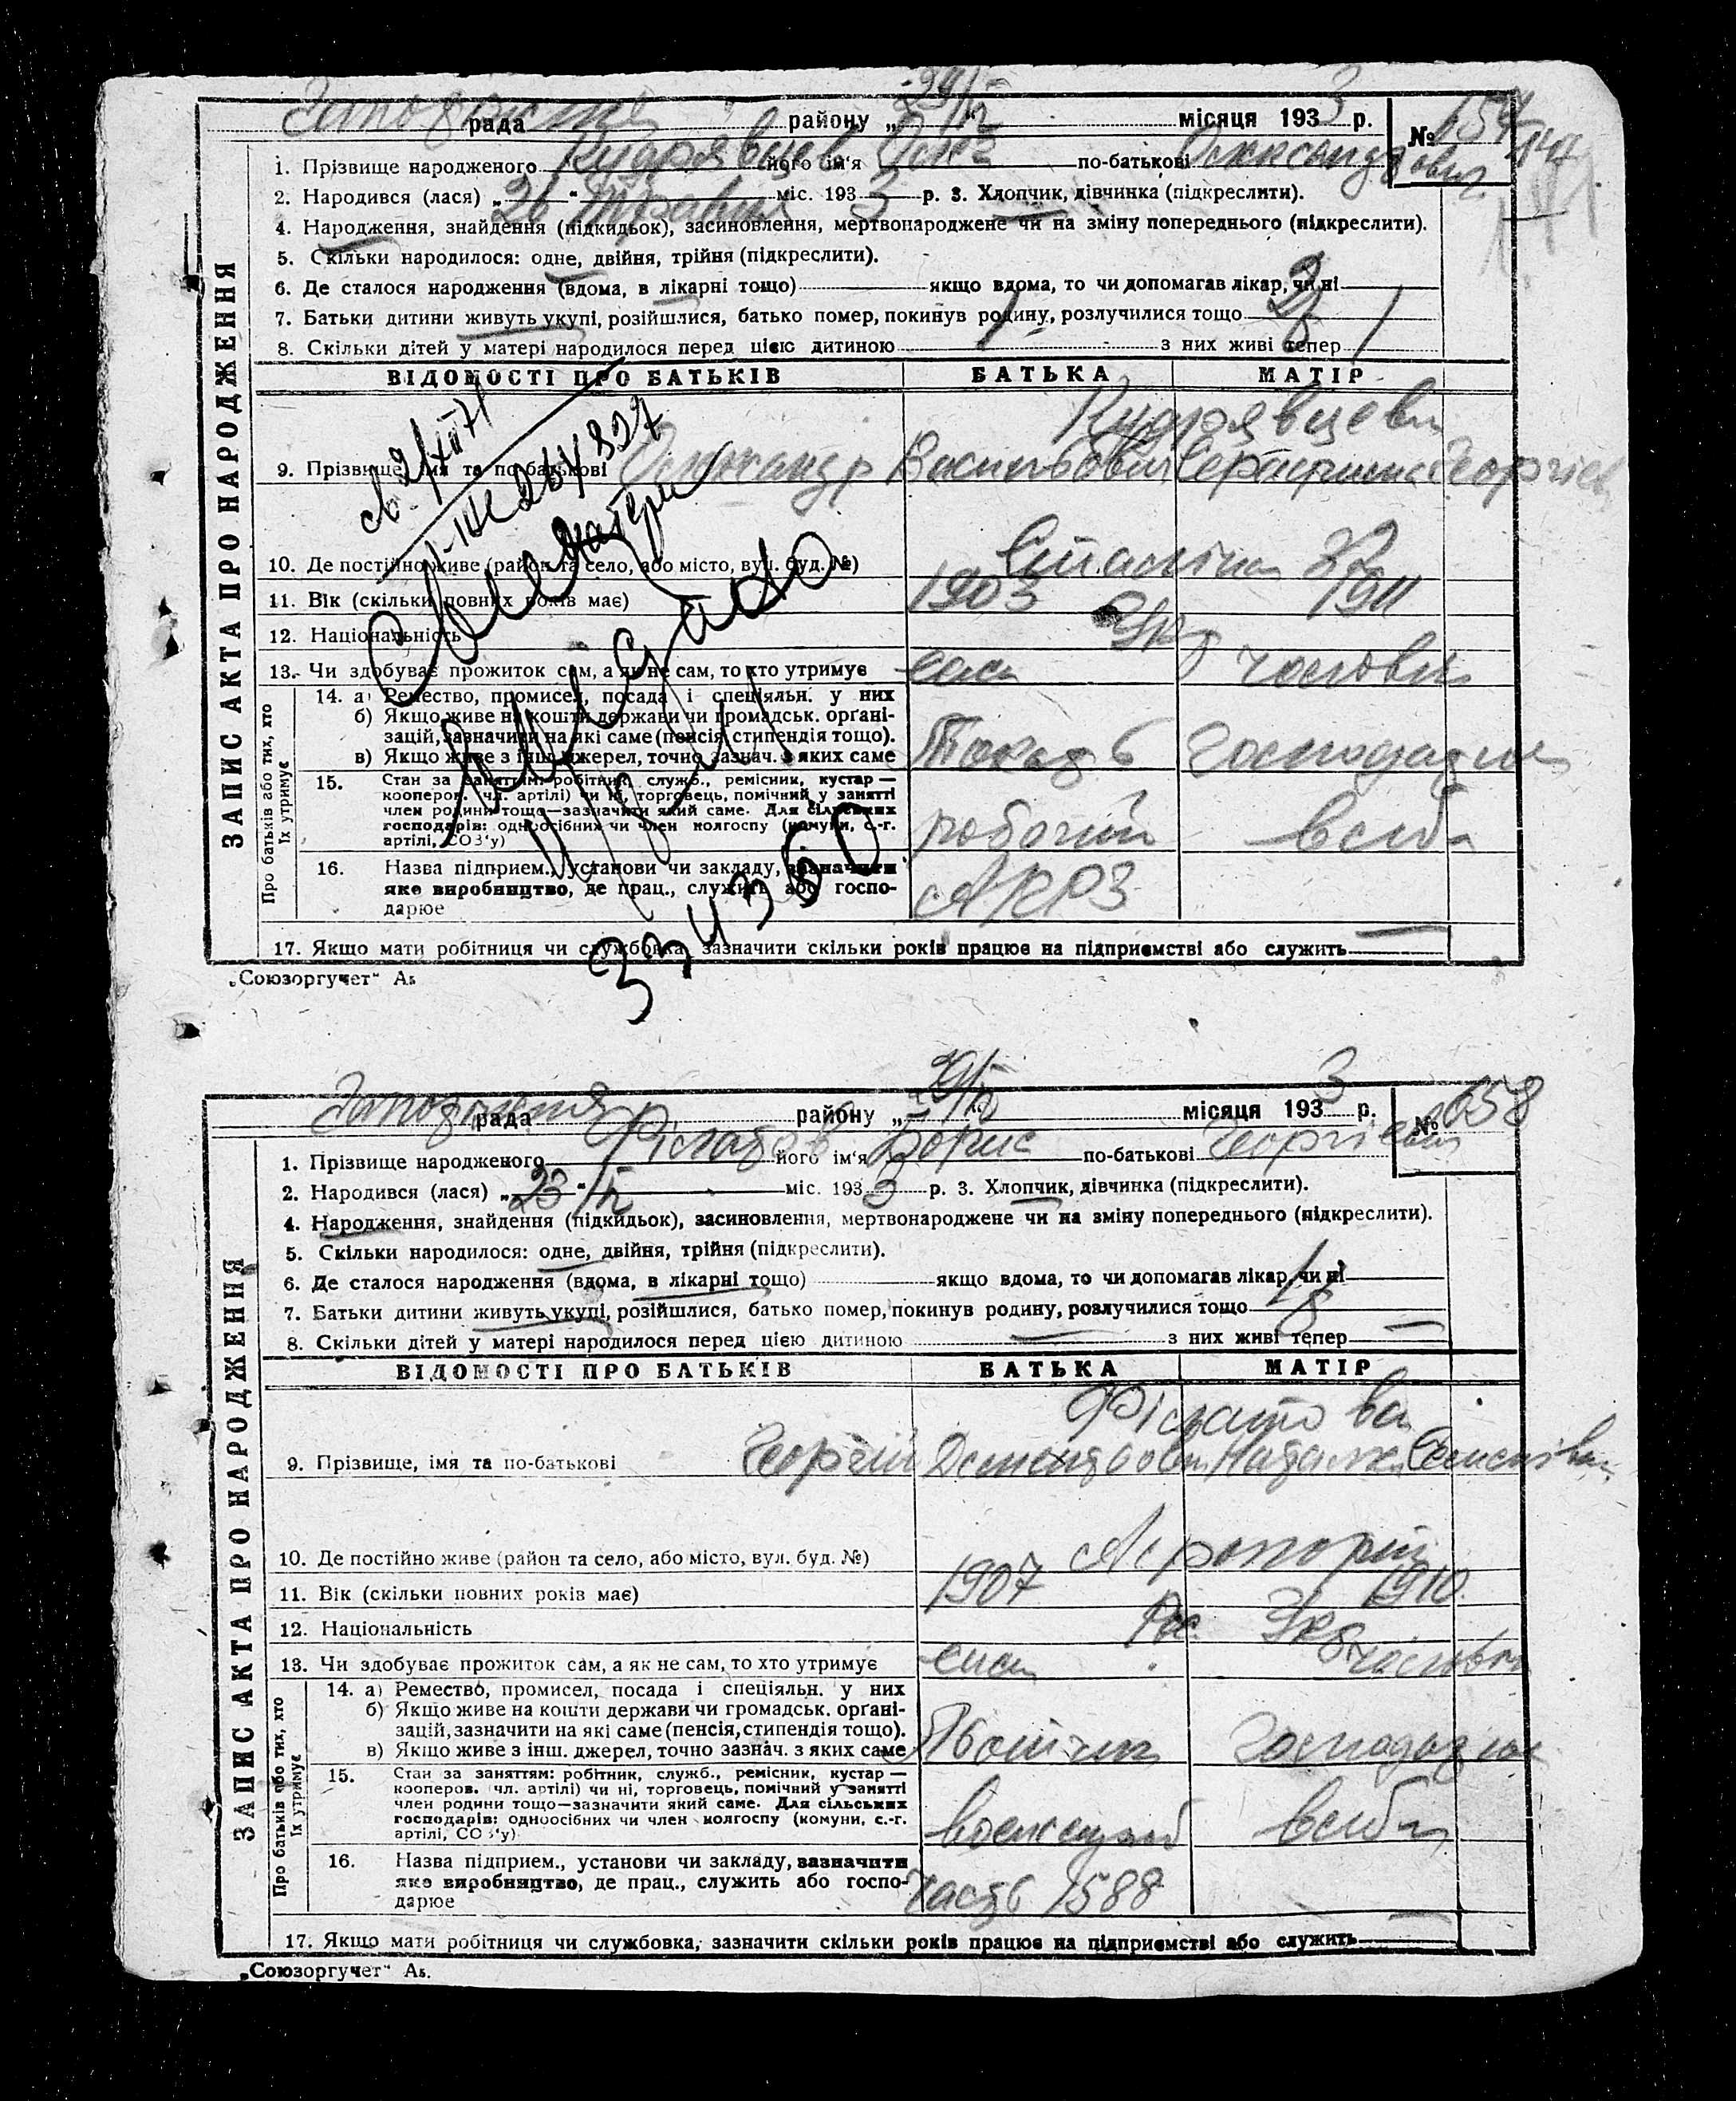 Запоріжжя рада району „29/V" місяця 1933 р. № 657
1. Прізвище народженого Кудрявцев його ім'я Олег по-батькові Олександрович
2. Народився (лася) „26" травня міс. 1933 р. 3. Хлопчик, дівчинка (підкреслити).
4. Народження, знайдення (підкидьок), засиновлення, мертвонароджене чи на зміну попереднього (підкреслити).
5. Скільки народилося: одне, двійня, трійня (підкреслити).
6. Де сталося народження (вдома, в лікарні тощо) якщо вдома, то чи допомагав лікар, чи ні
7. Батьки дитини живуть укупі, розійшлися, батько помер, покинув родину, розлучилися тощо
8. Скільки дітей у матері народилося перед цією дитиною 1 з них живі тепер 1
ЗАПИС АКТА ПРО НАРОДЖЕННЯ
ВІДОМОСТІ ПРО БАТЬКІВ БАТЬКА МАТІР
Кудрявцеви
9. Прізвище, імя та по-батькові Олександр Васильович Серафима Георгієв
10. Де постійно живе (район та село, або місто, вул. буд. №) Сталіна 32
11. Вік (скільки повних років має) 1903 1911
12. Національність Укр
13. Чи здобуває прожиток сам, а як не сам, то хто утримує сам чоловік
Про батьків або тих, хто їх утримує
14. а) Ремество, промисел, посада і спеціяльн. у них
б) Якщо живе на кошти держави чи громадськ. орґані-
зацій, зазначити на які саме (пенсія, стипендія тощо).
в) Якщо живе з інш. джерел, точно зазнач. з яких саме Токарь господарка
15. Стан за заняттям: робітник, служб., ремісник, кустар —
кооперов. (чл. артілі) чи ні, торговець, помічний у занятті
член родини тощо—зазначити який саме. Для сільських
господарів: одноосібних чи член колгоспу (комуни, с.-г.
артілі, СОЗ'у) робочий
16. Назва підприєм., установи чи закладу, зазначити
яке виробництво, де прац., служить або госпо-
дарює АРРЗ
17. Якщо мати робітниця чи службовка, зазначити скільки років працює на підприємстві або служить
„Союзоргучет" А5
334360
Запоріжжя рада району „29/V" місяця 1933 р. № 658
1. Прізвище народженого Філатов його ім'я Борис по-батькові Георгієвич
2. Народився (лася) „23"/V міс. 1933 р. 3. Хлопчик, дівчинка (підкреслити).
4. Народження, знайдення (підкидьок), засиновлення, мертвонароджене чи на зміну попереднього (підкреслити).
5. Скільки народилося: одне, двійня, трійня (підкреслити).
6. Де сталося народження (вдома, в лікарні тощо) якщо вдома, то чи допомагав лікар, чи ні
7. Батьки дитини живуть укупі, розійшлися, батько помер, покинув родину, розлучилися тощо
8. Скільки дітей у матері народилося перед цією дитиною — з них живі тепер —
ЗАПИС АКТА ПРО НАРОДЖЕННЯ
ВІДОМОСТІ ПРО БАТЬКІВ БАТЬКА МАТІР
Філатова
9. Прізвище, імя та по-батькові Георгій Дементьович Наталка Семенівна
10. Де постійно живе (район та село, або місто, вул. буд. №) Аеропорт
11. Вік (скільки повних років має) 1907 1910
12. Національність Рос. Укр
13. Чи здобуває прожиток сам, а як не сам, то хто утримує сам чоловік
Про батьків або тих, хто їх утримує
14. а) Ремество, промисел, посада і спеціяльн. у них
б) Якщо живе на кошти держави чи громадськ. орґані-
зацій, зазначити на які саме (пенсія, стипендія тощо).
в) Якщо живе з інш. джерел, точно зазнач. з яких саме господарка
15. Стан за заняттям: робітник, служб., ремісник, кустар —
кооперов. (чл. артілі) чи ні, торговець, помічний у занятті
член родини тощо—зазначити який саме. Для сільських
господарів: одноосібних чи член колгоспу (комуни, с.-г.
артілі, СОЗ'у) военслужб
16. Назва підприєм., установи чи закладу, зазначити
яке виробництво, де прац., служить або госпо-
дарює часть 1588
17. Якщо мати робітниця чи службовка, зазначити скільки років працює на підприємстві або служить —
„Союзоргучет" А5.